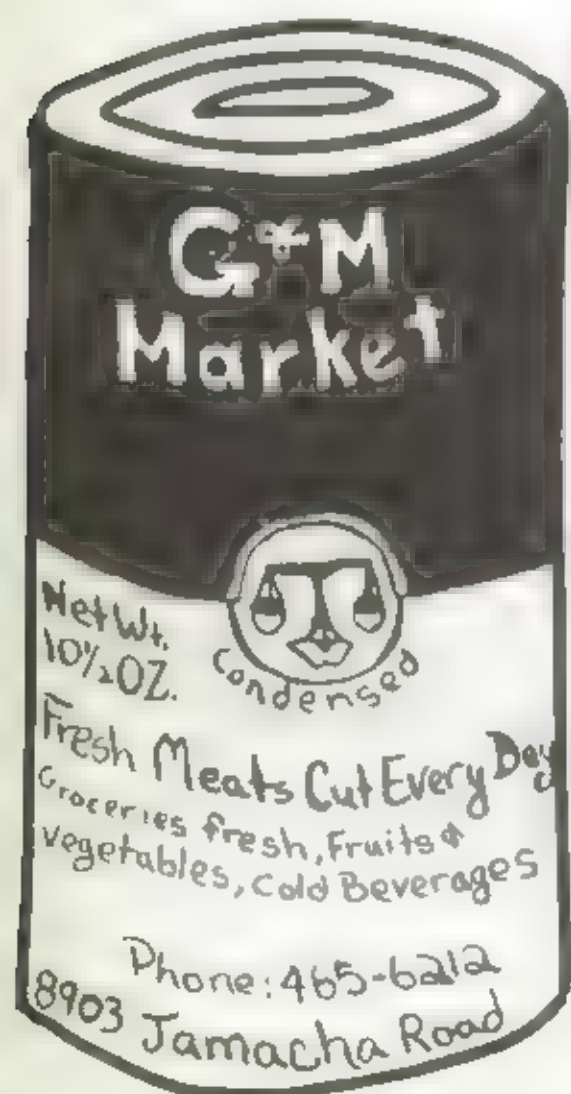 G & M
Market
Net Wt.
10½ OZ.
Condensed
Fresh Meats Cut Every Day
Groceries fresh, Fruits &
vegetables, Cold Beverages
Phone: 465-6212
8903 Jamacha Road